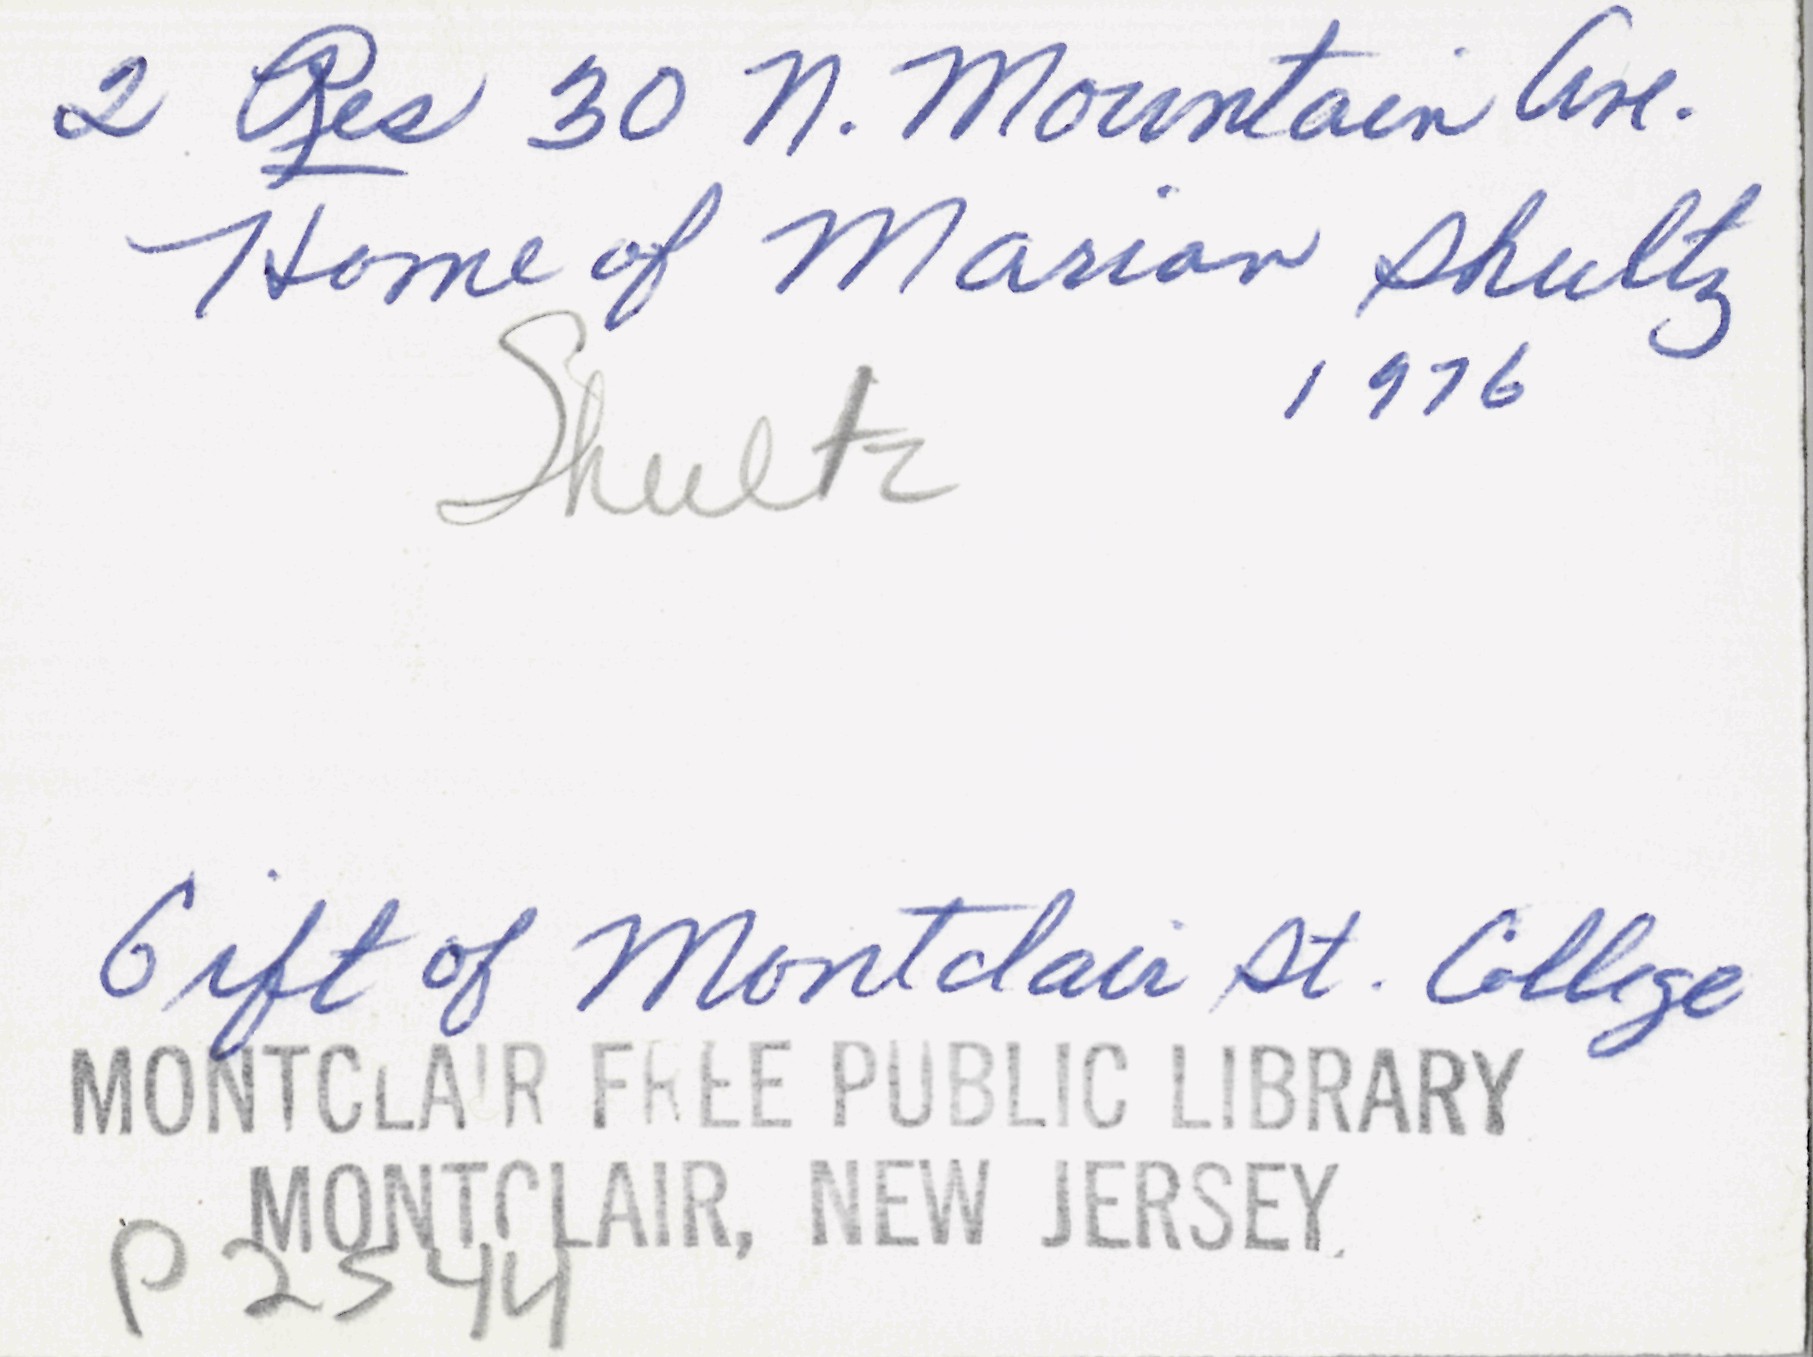 2 Res 30 N. Mountain Ave.
Home of Marian Shultz
1976
Shultz
Gift of Montclair St. College
MONTCLAIR FREE PUBLIC LIBRARY
MONTCLAIR, NEW JERSEY.
P2544